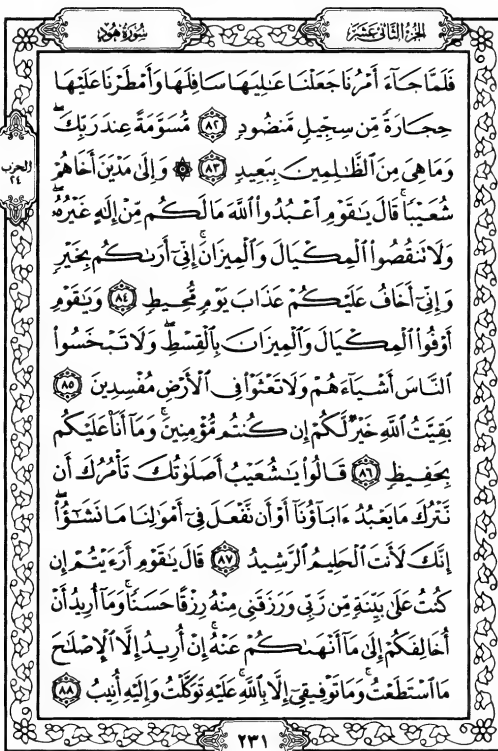 الجزء الثاني عشر
سورة هود
فَلَمَّا جَآءَ أَمْرُنَا جَعَلْنَا عَٰلِيَهَا سَافِلَهَا وَأَمْطَرْنَا عَلَيْهَا
حِجَارَةً مِّن سِجِّيلٍ مَّنضُودٍ ٨٢ مُّسَوَّمَةً عِندَ رَبِّكَۖ
وَمَا هِىَ مِنَ ٱلظَّٰلِمِينَ بِبَعِيدٍ ٨٣ ۞ وَإِلَىٰ مَدْيَنَ أَخَاهُمْ
الحزب
٢٤
شُعَيْبًاۚ قَالَ يَٰقَوْمِ ٱعْبُدُوا۟ ٱللَّهَ مَا لَكُم مِّنْ إِلَٰهٍ غَيْرُهُۥۖ
وَلَا تَنقُصُوا۟ ٱلْمِكْيَالَ وَٱلْمِيزَانَۚ إِنِّىٓ أَرَىٰكُم بِخَيْرٍ
وَإِنِّىٓ أَخَافُ عَلَيْكُمْ عَذَابَ يَوْمٍ مُّحِيطٍ ٨٤ وَيَٰقَوْمِ
أَوْفُوا۟ ٱلْمِكْيَالَ وَٱلْمِيزَانَ بِٱلْقِسْطِۖ وَلَا تَبْخَسُوا۟
ٱلنَّاسَ أَشْيَآءَهُمْ وَلَا تَعْثَوْا۟ فِى ٱلْأَرْضِ مُفْسِدِينَ ٨٥
بَقِيَّتُ ٱللَّهِ خَيْرٌ لَّكُمْ إِن كُنتُم مُّؤْمِنِينَۚ وَمَآ أَنَا۠ عَلَيْكُم
بِحَفِيظٍ ٨٦ قَالُوا۟ يَٰشُعَيْبُ أَصَلَوٰتُكَ تَأْمُرُكَ أَن
نَّتْرُكَ مَا يَعْبُدُ ءَابَآؤُنَآ أَوْ أَن نَّفْعَلَ فِىٓ أَمْوَٰلِنَا مَا نَشَٰٓؤُا۟ۖ
إِنَّكَ لَأَنتَ ٱلْحَلِيمُ ٱلرَّشِيدُ ٨٧ قَالَ يَٰقَوْمِ أَرَءَيْتُمْ إِن
كُنتُ عَلَىٰ بَيِّنَةٍ مِّن رَّبِّى وَرَزَقَنِى مِنْهُ رِزْقًا حَسَنًاۚ وَمَآ أُرِيدُ أَنْ
أُخَالِفَكُمْ إِلَىٰ مَآ أَنْهَىٰكُمْ عَنْهُۚ إِنْ أُرِيدُ إِلَّا ٱلْإِصْلَٰحَ
مَا ٱسْتَطَعْتُۚ وَمَا تَوْفِيقِىٓ إِلَّا بِٱللَّهِۚ عَلَيْهِ تَوَكَّلْتُ وَإِلَيْهِ أُنِيبُ ٨٨
٢٣١